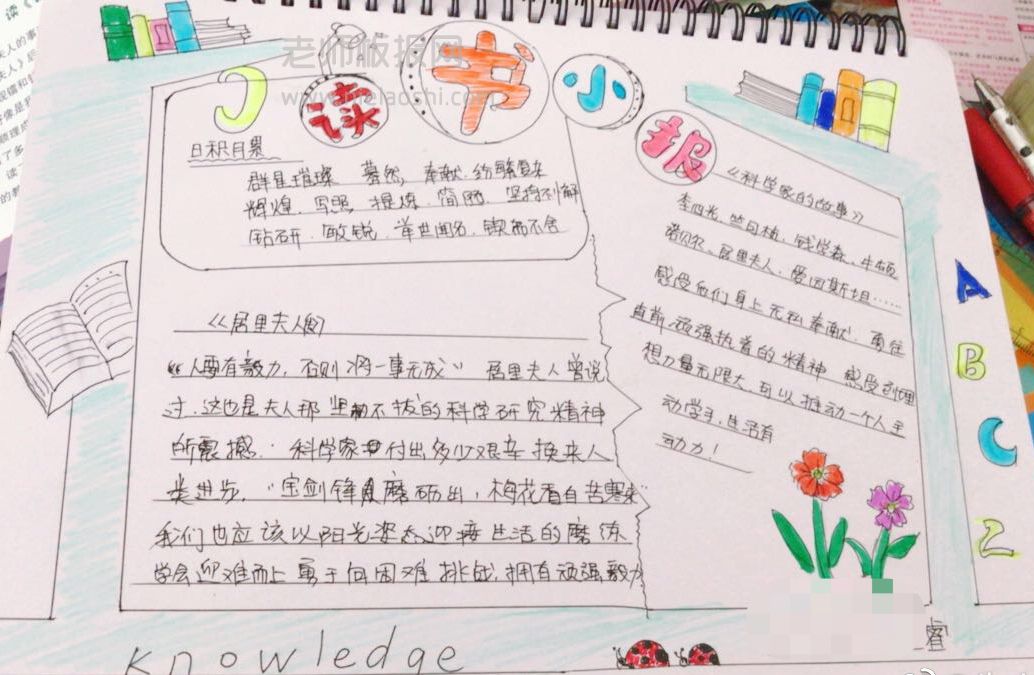 读书小报
老师板报网
www.melaoshi.com
日积月累
群星璀璨 蓦然 奉献 纷繁复杂
辉煌 写照 提炼 简陋 坚持不懈
钻研 敏锐 举世闻名 锲而不舍
《居里夫人》
“人要有毅力，否则将一事无成” 居里夫人曾说
过，这也是夫人那坚韧不拔的科学研究精神
所震撼 科学家付出多少艰辛换来人
类进步，“宝剑锋自磨砺出，梅花香自苦寒来”
我们也应该以阳光姿态迎接生活的磨练
学会迎难而上 勇于向困难挑战，拥有顽强毅力
《科学家的故事》
李四光，竺可桢，钱学森，牛顿
诺贝尔，居里夫人，爱因斯坦……
感受他们身上无私奉献，勇往
直前 顽强执着的精神 感受到理
想力量无限大，可以推动一个人主
动学习，生活有
动力！
A
B
C
Z
knowledge
睿